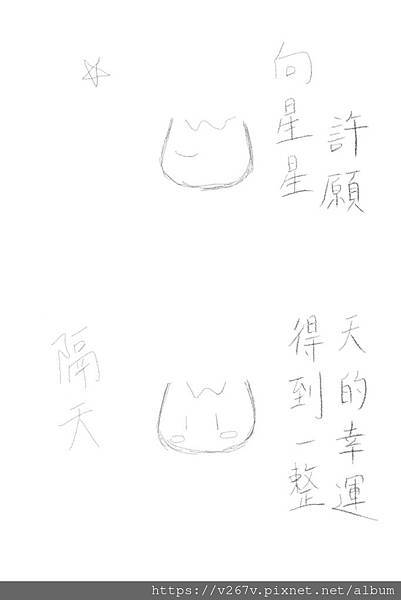 向星星
許願
隔天
得到一整
天的幸運
https://v267v.pixnet.net/album